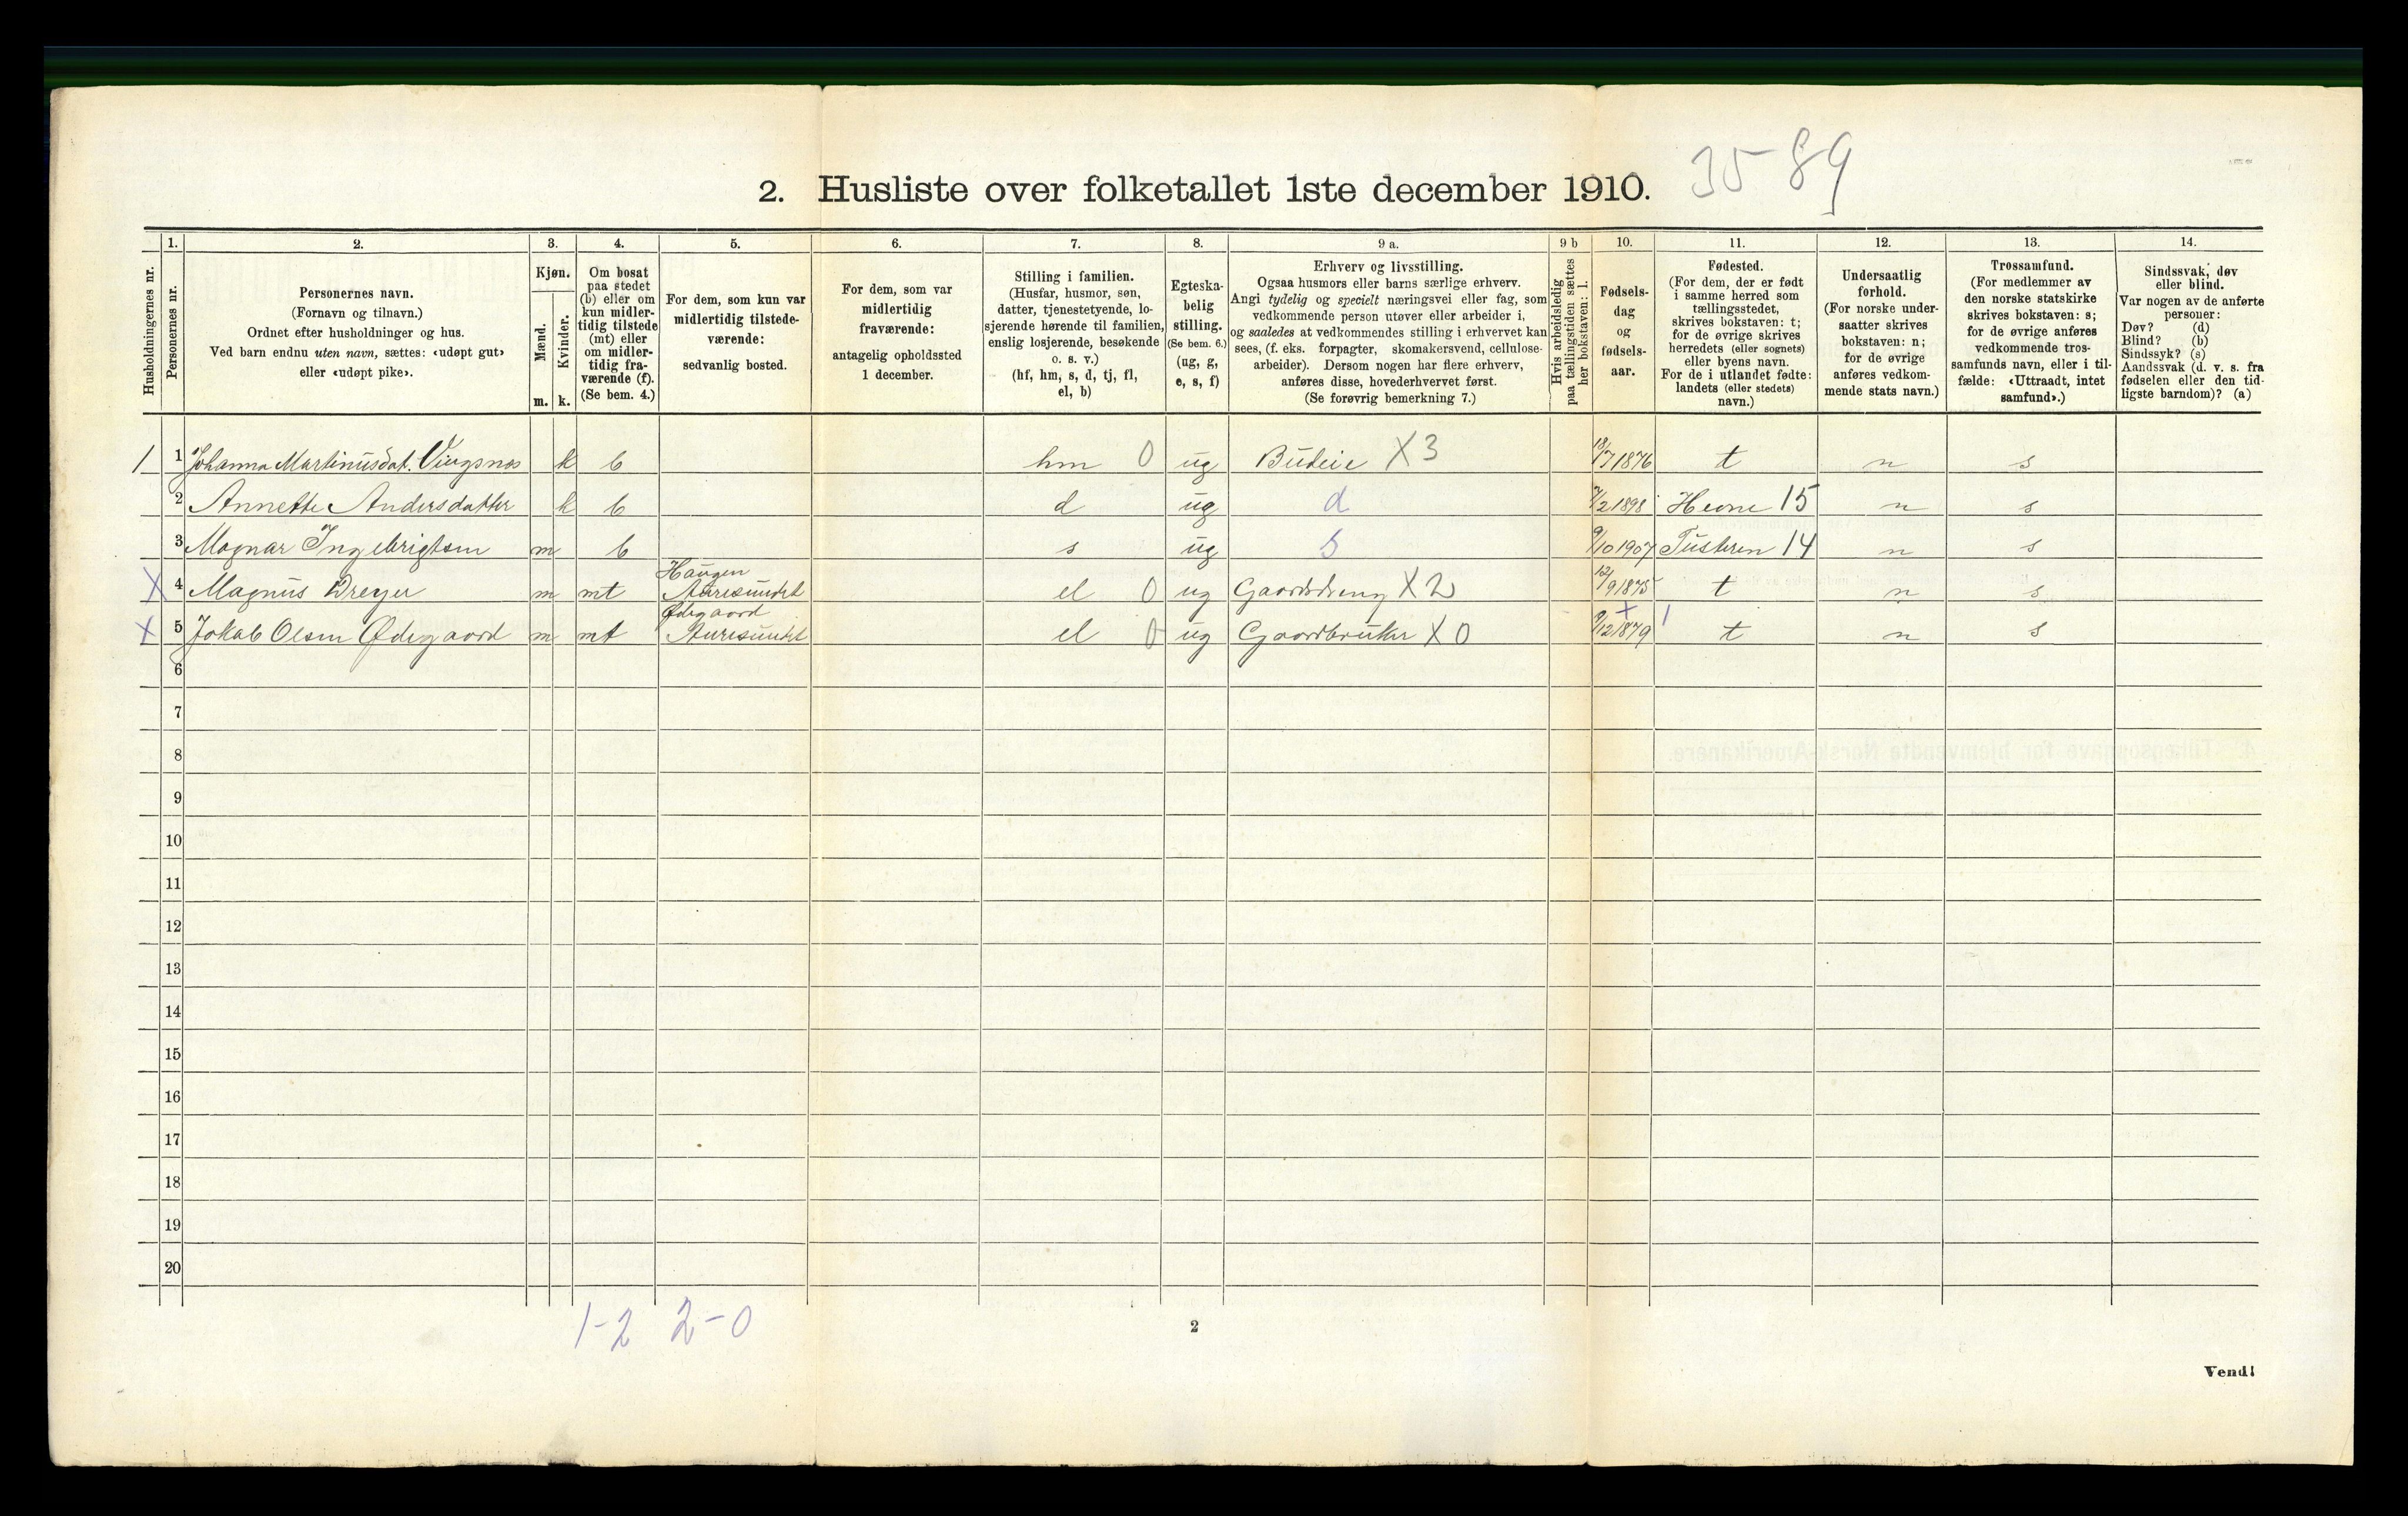 2. Husliste over folketallet 1ste december 1910. 35 89
Husholdningernes nr.
1.
Personernes nr.
2.
Personernes navn.
(Fornavn og tilnavn.)
Ordnet efter husholdninger og hus.
Ved barn endnu uten navn, sættes: «udøpt gut»
eller «udøpt pike».
3.
Kjøn.
Mænd.
Kvinder.
m. k.
4.
Om bosat
paa stedet
(b) eller om
kun midler-
tidig tilstede
(mt) eller
om midler-
tidig fra-
værende (f).
(Se bem. 4.)
5.
For dem, som kun var
midlertidig tilstede-
værende:
sedvanlig bosted.
6.
For dem, som var
midlertidig
fraværende:
antagelig opholdssted
1 december.
7.
Stilling i familien.
(Husfar, husmor, søn,
datter, tjenestetyende, lo-
sjerende hørende til familien,
enslig losjerende, besøkende
o. s. v.)
(hf, hm, s, d, tj, fl,
el, b)
8.
Egteska-
belig
stilling.
(Se bem. 6.)
(ug, g,
e, s, f)
9 a.
Erhverv og livsstilling.
Ogsaa husmors eller barns særlige erhverv.
Angi tydelig og specielt næringsvei eller fag, som
vedkommende person utøver eller arbeider i,
og saaledes at vedkommendes stilling i erhvervet kan
sees, (f. eks. forpagter, skomakersvend, cellulose-
arbeider). Dersom nogen har flere erhverv,
anføres disse, hovederhvervet først.
(Se forøvrig bemerkning 7.)
9 b
Hvis arbeidsledig
paa tællingstiden sættes
her bokstaven: l.
10.
Fødsels-
dag
og
fødsels-
aar.
11.
Fødested.
(For dem, der er født
i samme herred som
tællingsstedet,
skrives bokstaven: t;
for de øvrige skrives
herredets (eller sognets)
eller byens navn.
For de i utlandet fødte:
landets (eller stedets)
navn.)
12.
Undersaatlig
forhold.
(For norske under-
saatter skrives
bokstaven: n;
for de øvrige
anføres vedkom-
mende stats navn.)
13.
Trossamfund.
(For medlemmer av
den norske statskirke
skrives bokstaven: s;
for de øvrige anføres
vedkommende tros-
samfunds navn, eller i til-
fælde: «Uttraadt, intet
samfund».)
14.
Sindssvak, døv
eller blind.
Var nogen av de anførte
personer:
Døv? (d)
Blind? (b)
Sindssyk? (s)
Aandssvak (d. v. s. fra
fødselen eller den tid-
ligste barndom)? (a)
1 1 Johanna Martinusdat. Vingsnes k b hm 0 ug Budeie X 3 18/7 1876 t n s
2 Annette Andersdatter k b d ug d 7/2 1898 Hevne 15 n s
3 Magnar Ingebrigtsen m b s ug S 9/10 1907 Tusteren 14 n s
X 4 Magnus Dreyer m mt Haugen Auresundet el 0 ug Gaardsdreng X 2 12/9 1875 t n s
X 5 Jokab Olsen Ødegaard m mt Ødegaard Auresundet el 0 ug Gaardbruker X 0 9/12 1879 t n s
6
7
8
9
10
11
12
13
14
15
16
17
18
19
20
1-2 2-0
2
Vend!